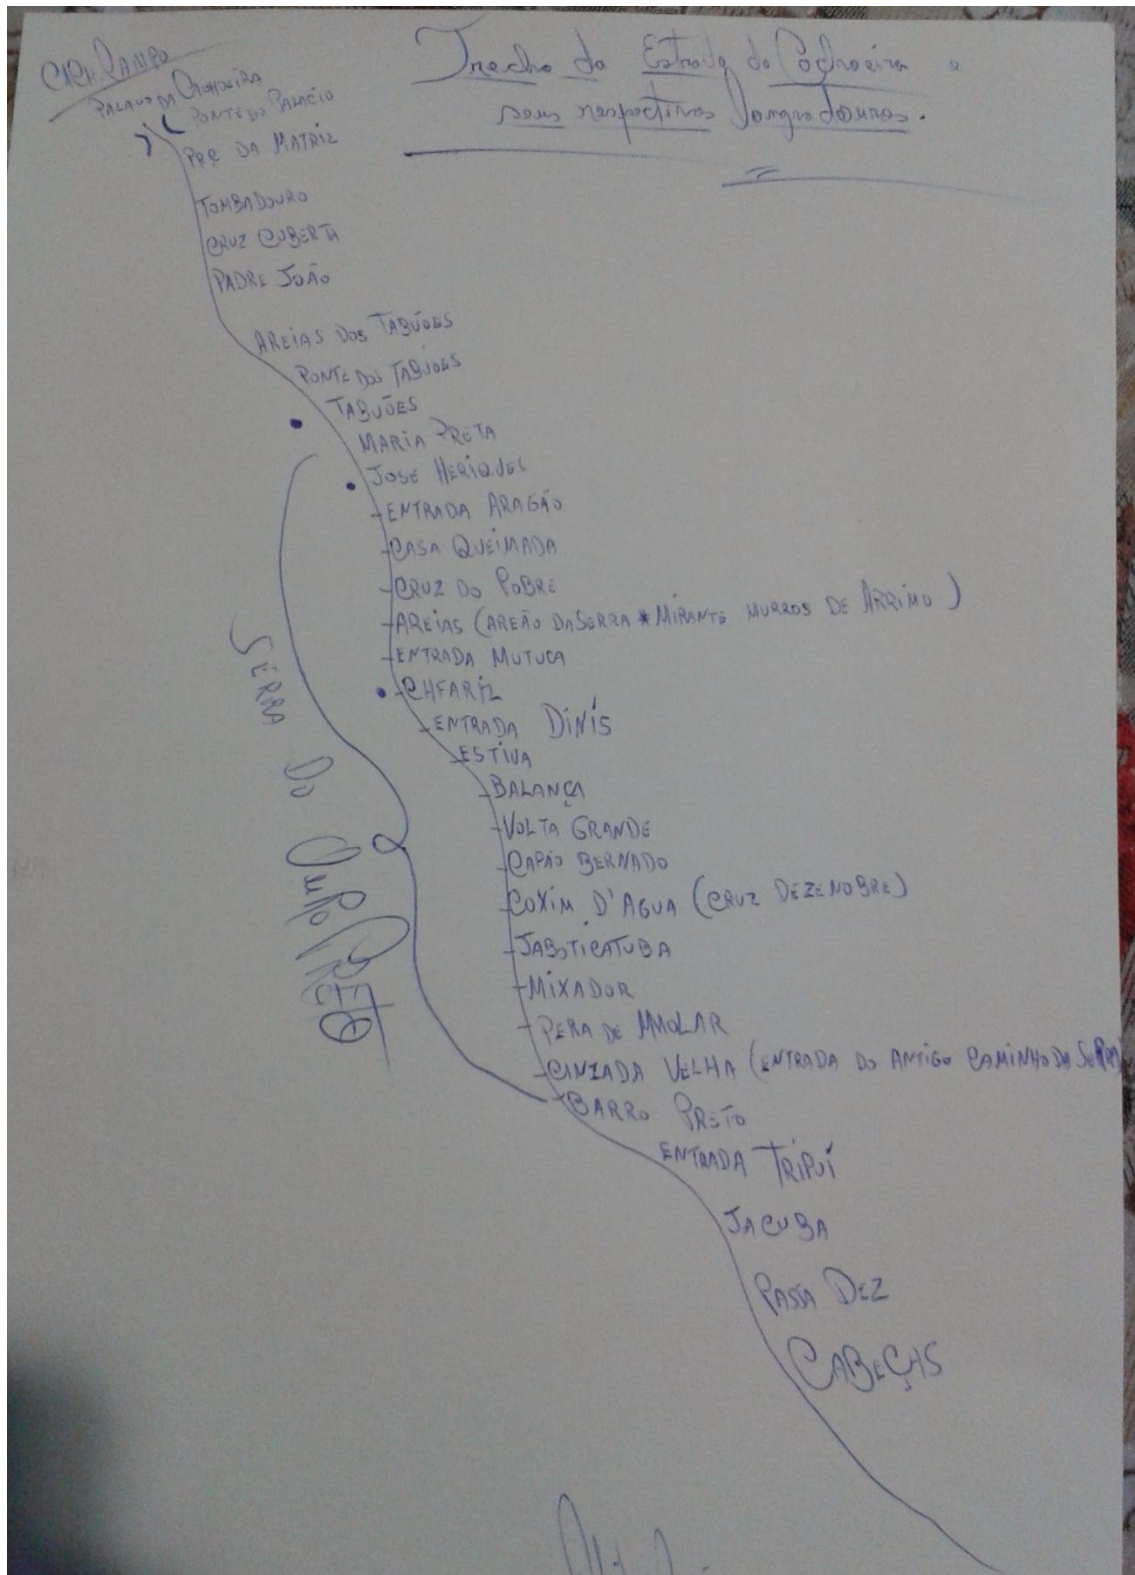 Trecho da Estrada da Cachoeira e
seus respectivos logradouros.
PALACIO DA CACHOEIRA
PONTE DO PALACIO
PRÇ DA MATRIZ
TOMBADOURO
CRUZ CUBERTA
PADRE JOÃO
AREIAS DOS TABUÕES
PONTE DOS TABUÕES
TABUÕES
MARIA PRETA
JOSE HERIQUES
ENTRADA ARAGÃO
CASA QUEIMADA
CRUZ DO POBRE
AREIAS (AREÃO DA SERRA * MIRANTE MURROS DE ARRIMO)
ENTRADA MUTUCA
CHFARIZ
ENTRADA DINIS
ESTIVA
BALANÇA
VOLTA GRANDE
CAPÃO BERNADO
COXIM D'AGUA (CRUZ DEZENOBRE)
JABOTICATUBA
MIXADOR
PERA DE MMOLAR
CINZADA VELHA (ENTRADA DO ANTIGO CAMINHO DA SERRA)
BARRO PRETO
ENTRADA TRIPUÍ
JACUBA
PASSA DEZ
CABEÇAS
SERRA DO OURO PRETO